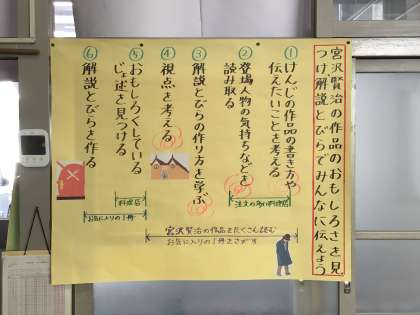 宮沢賢治の作品のおもしろさを見
つけ解説とびらでみんなに伝えよう
①けんじの作品の書き方や
伝えたいことを考える
②登場人物の気持ちなどを
読み取る
③解説とびらの作り方を学ぶ
④視点を考える
⑤おもしろくしている
じょ述を見つける
⑥解説とびらを作る
注文の多い料理店
料理店
お気に入りの1冊
宮沢賢治の作品をたくさん読む
お気に入りの1冊をさがす